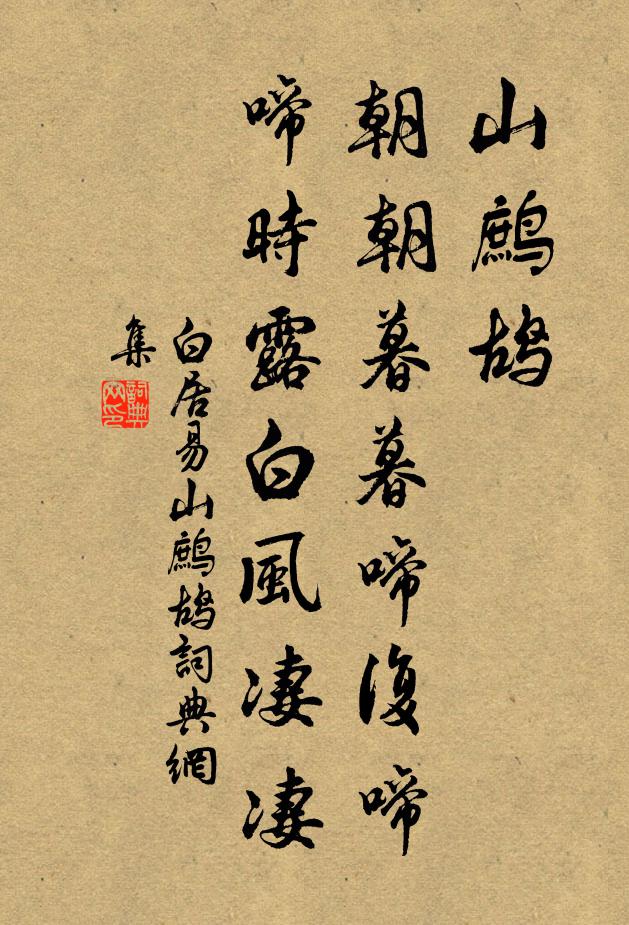 山鷓鴣
朝朝暮暮啼復啼
啼時露白風凄凄
白居易山鷓鴣詞典網
集
詞典
网印